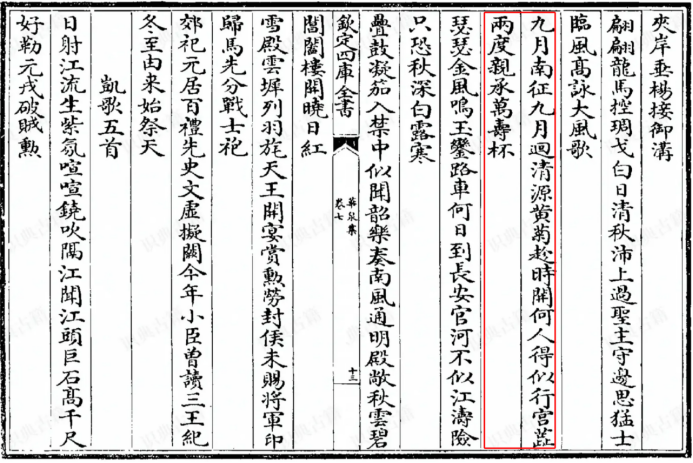 夾岸垂楊接御溝
翩翩龍馬控琱戈白日清秋沛上過聖主守邊思猛士
臨風髙詠大風歌
九月南征九月迴清源黄菊趁時開何人得似行宫蕋
兩度親承萬壽杯
瑟瑟金風鳴玉鑾路車何日到長安官河不似江濤險
只恐秋深白露寒
疊鼓凝笳入禁中似聞韶樂奏南風通明殿敞秋雲碧
欽定四庫全書
華泉集
卷七
十三
閶闔樓開曉日紅
雪殿雲墀列羽旄天王開宴賞勲勞封侯未賜將軍印
歸馬先分戰士袍
郊祀元居百禮先史文虚擬闕今年小臣曾讀三王紀
冬至由来始祭天
凱歌五首
日射江流生紫氛喧喧鐃吹隔江聞江頭巨石髙千尺
好勒元戎破賊勲